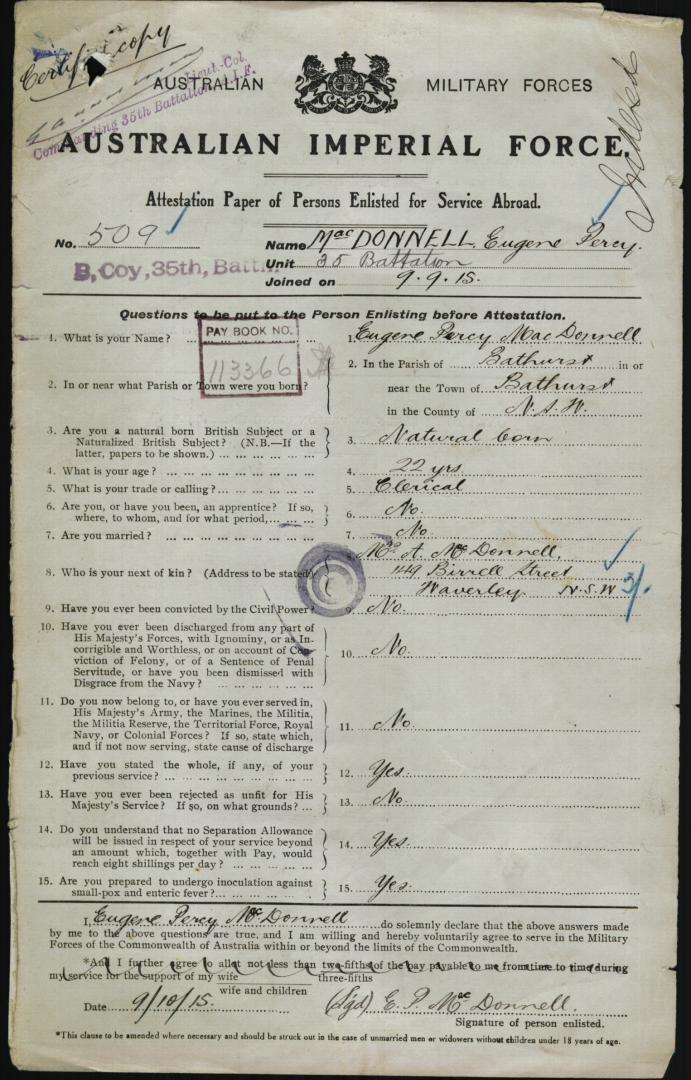 Certified copy
Lieut-Col.
Commanding 35th Battalion A.I.F.
AUSTRALIAN MILITARY FORCES
AUSTRALIAN IMPERIAL FORCE.
Attestation Paper of Persons Enlisted for Service Abroad.
No. 509 Name MacDONNELL, Eugene Percy.
Unit 35 Battalion
B, Coy, 35th, Battn.
Joined on 9.9.15.
Questions to be put to the Person Enlisting before Attestation.
1. What is your Name? ... 1. Eugene Percy MacDonnell
PAY BOOK NO.
113366
2. In or near what Parish or Town were you born? 2. In the Parish of Bathurst in or
near the Town of Bathurst
in the County of N.S.W.
3. Are you a natural born British Subject or a
Naturalized British Subject? (N.B.—If the
latter, papers to be shown.) ... 3. Natural born
4. What is your age? ... 4. 22 yrs
5. What is your trade or calling? ... 5. Clerical
6. Are you, or have you been, an apprentice? If so,
where, to whom, and for what period, ... 6. No.
7. Are you married? ... 7. No
8. Who is your next of kin? (Address to be stated) A. McDonnell,
149 Birrell Street
Waverley N.S.W
9. Have you ever been convicted by the Civil Power? 9. No.
10. Have you ever been discharged from any part of
His Majesty's Forces, with Ignominy, or as In-
corrigible and Worthless, or on account of Con-
viction of Felony, or of a Sentence of Penal
Servitude, or have you been dismissed with
Disgrace from the Navy? ... 10. No.
11. Do you now belong to, or have you ever served in,
His Majesty's Army, the Marines, the Militia,
the Militia Reserve, the Territorial Force, Royal
Navy, or Colonial Forces? If so, state which,
and if not now serving, state cause of discharge 11. No.
12. Have you stated the whole, if any, of your
previous service? ... 12. Yes.
13. Have you ever been rejected as unfit for His
Majesty's Service? If so, on what grounds? ... 13. No.
14. Do you understand that no Separation Allowance
will be issued in respect of your service beyond
an amount which, together with Pay, would
reach eight shillings per day? ... 14. Yes.
15. Are you prepared to undergo inoculation against
small-pox and enteric fever? ... 15. Yes.
I, Eugene Percy McDonnell do solemnly declare that the above answers made
by me to the above questions are true, and I am willing and hereby voluntarily agree to serve in the Military
Forces of the Commonwealth of Australia within or beyond the limits of the Commonwealth.
*And I further agree to allot not less than two-fifths of the pay payable to me from time to time during
my service for the support of my wife three-fifths
wife and children
Date 9/10/15. (Sgd) E. P. MacDonnell.
Signature of person enlisted.
*This clause to be amended where necessary and should be struck out in the case of unmarried men or widowers without children under 18 years of age.